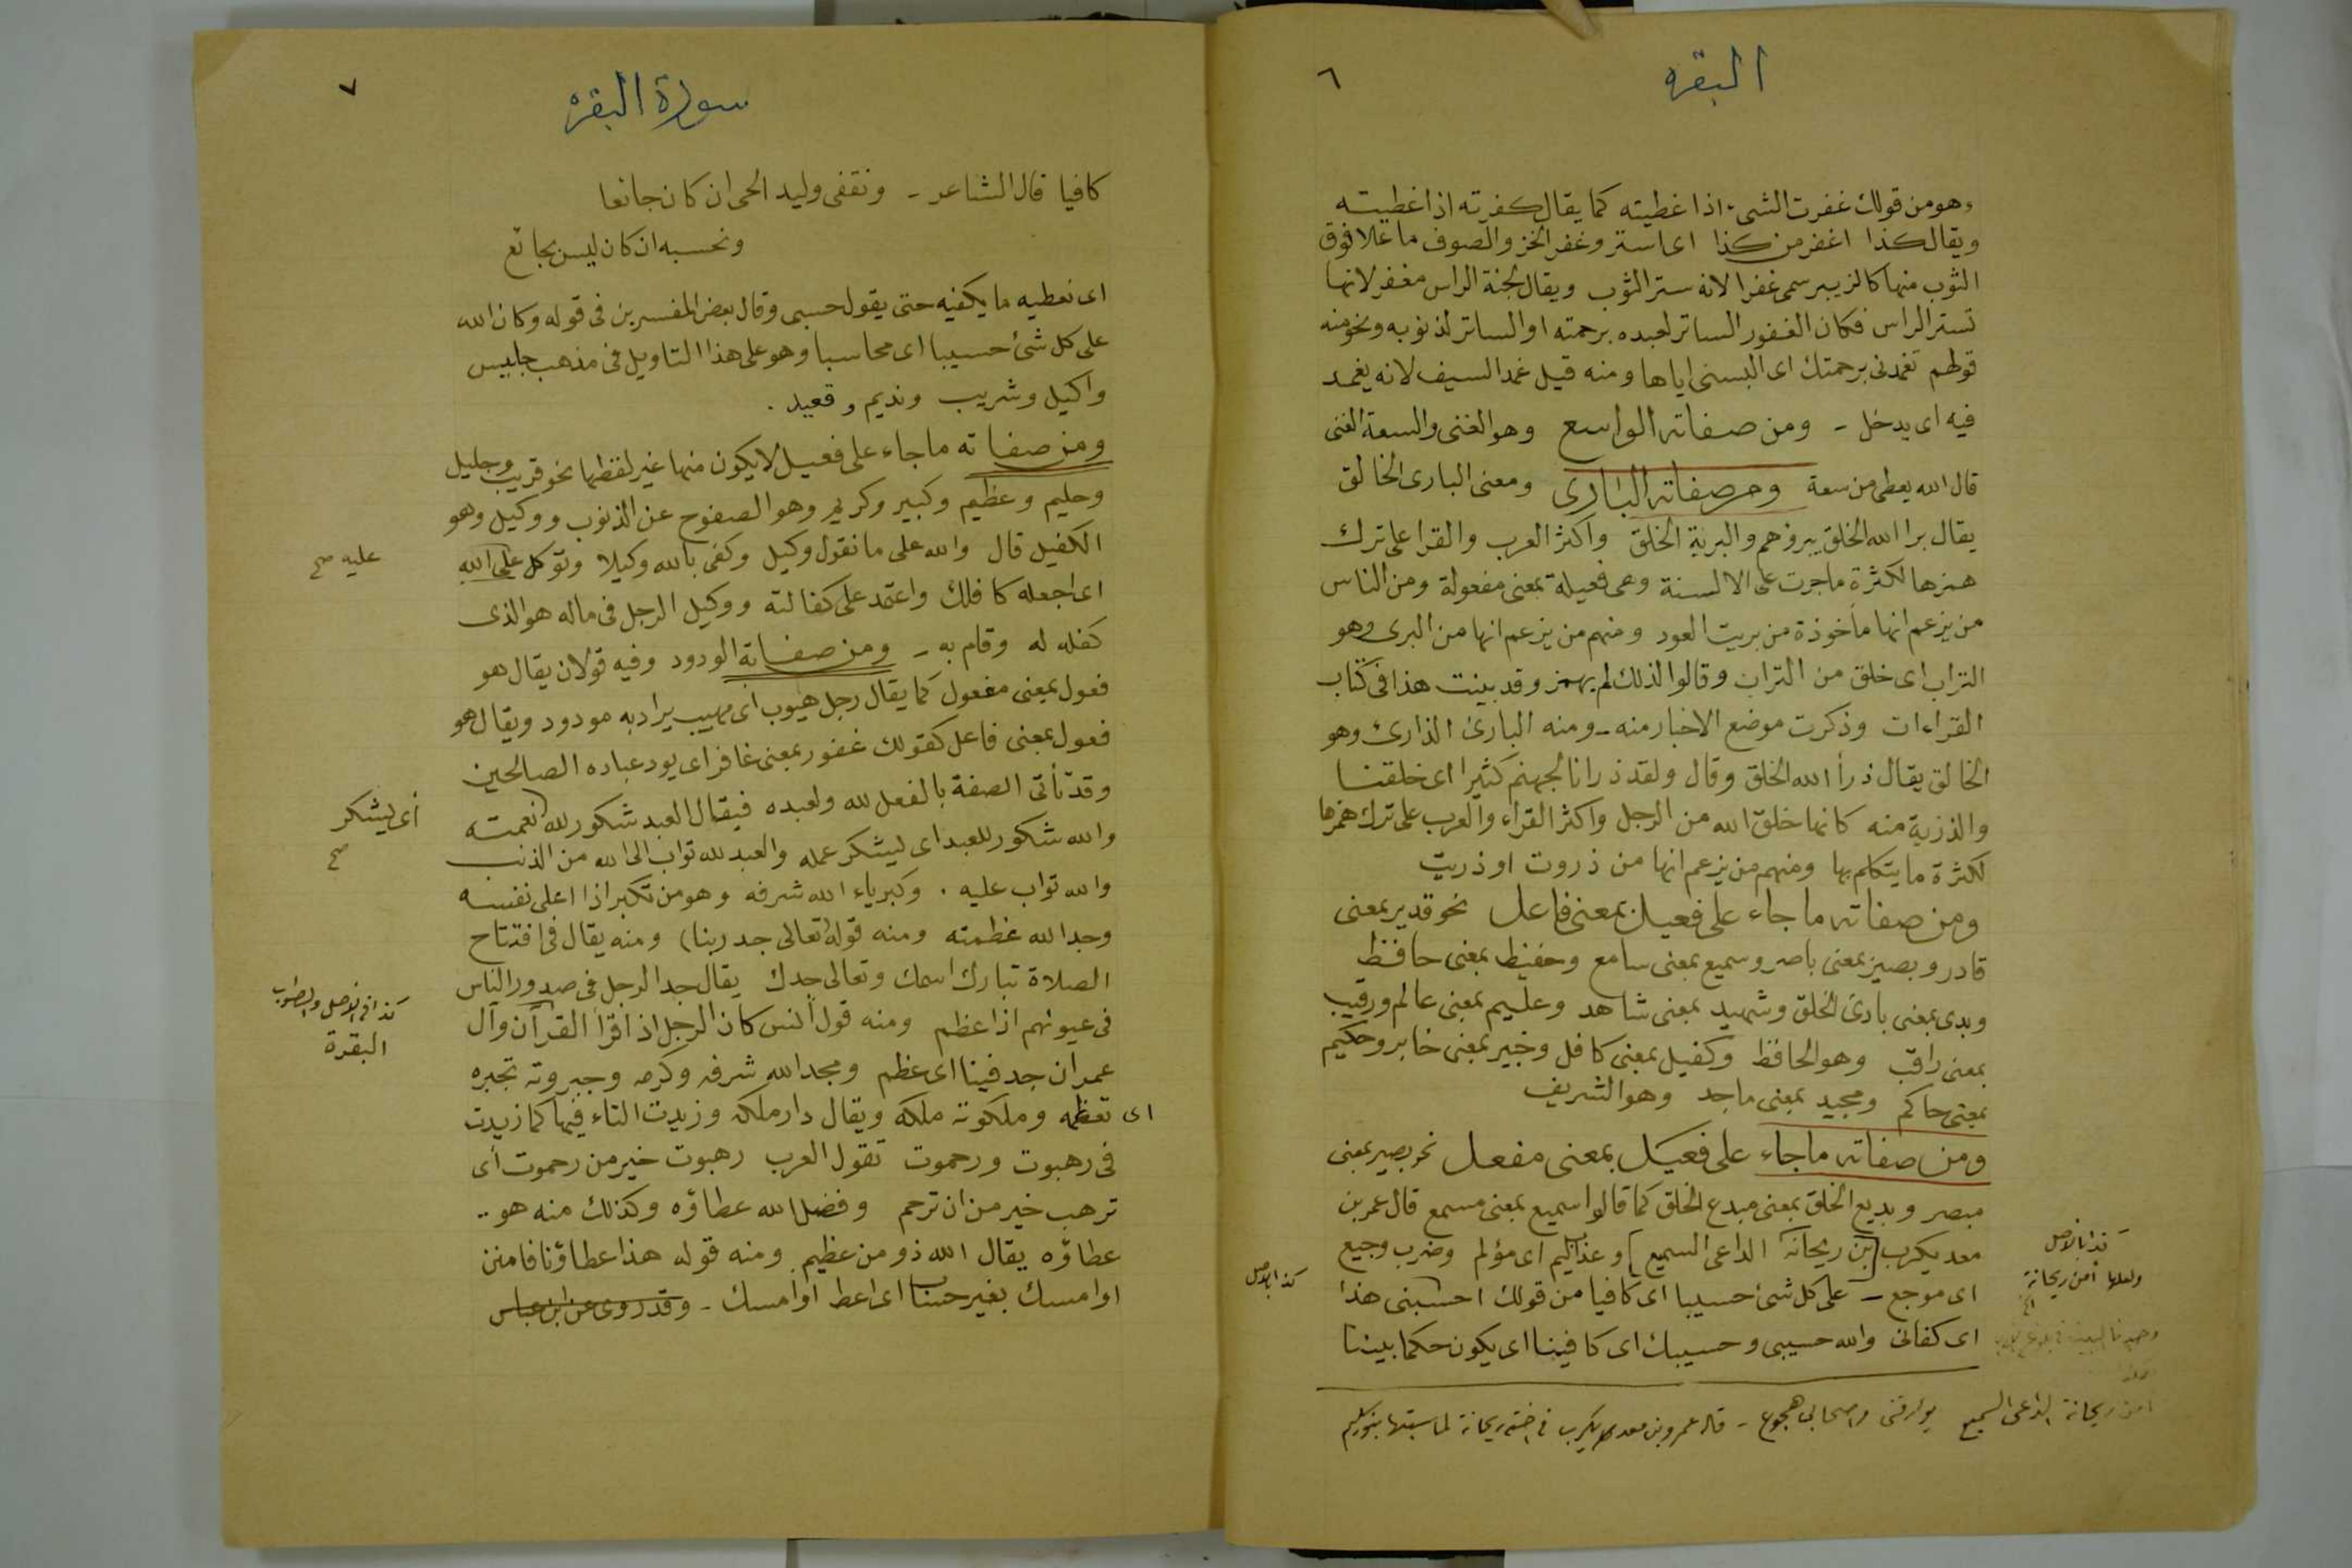 البقره
٦
وهو من قولك غفرت الشىء اذا غطيته كما يقال كفرته اذا غطيته
ويقال كذا اغفر من كذا اى استر وغفر الخز والصوف ما علا فوق
الثوب منها كالزيبر سمى غفرا لانه ستر الثوب ويقال لجنة الراس مغفر لانها
تستر الراس فكان الغفور الساتر لعبده برحمته او الساتر لذنوبه ونحو منه
قولهم تغمدنى برحمتك اى البسنى اياها ومنه قيل غمد السيف لانه يغمد
فيه اى يدخل - ومن صفاته الواسع وهو الغنى والسعة الغنى
قال الله يعطى من سعة ومن صفاته البارى ومعنى البارى الخالق
يقال برا الله الخلق يبروهم والبرية الخلق واكثر العرب والقرا على ترك
همزها لكثرة ما جرت على الالسنة وهى فعيلة بمعنى مفعولة ومن الناس
من يزعم انها مأخوذة من بريت العود ومنهم من يزعم انها من البرى وهو
التراب اى خلق من التراب وقالوا لذلك لم يهمز وقد بينت هذا فى كتاب
القراءات وذكرت موضع الاخبار منه - ومنه البارئ الذارئ وهو
الخالق يقال ذرأ الله الخلق وقال ولقد ذرانا لجهنم كثيرا اى خلقنا
والذرية منه كانها خلق الله من الرجل واكثر القراء والعرب على ترك همزها
لكثرة ما يتكلم بها ومنهم من يزعم انها من ذروت او ذريت
ومن صفاته ما جاء على فعيل بمعنى فاعل نحو قدير بمعنى
قادر وبصير بمعنى باصر وسميع بمعنى سامع وحفيظ بمعنى حافظ
وبدى بمعنى بادئ الخلق وشهيد بمعنى شاهد وعليم بمعنى عالم ورقيب
بمعنى راقب وهو الحافظ وكفيل بمعنى كافل وخبير بمعنى خابر وحكيم
بمعنى حاكم ومجيد بمعنى ماجد وهو الشريف
ومن صفاته ما جاء على فعيل بمعنى مفعل نحو بصير بمعنى
مبصر وبديع الخلق بمعنى مبدع الخلق كما قالوا سميع بمعنى مسمع قال عمر بن
معد يكرب [بن ريحانة الداعى السميع] وعذاب اليم اى مؤلم وضرب وجيع
اى موجع - على كل شئ حسيبا اى كافيا من قولك احسبنى هذا
اى كفانى والله حسيبى وحسيبك اى كافينا اى يكون حكما بيننا
كذا بالاصل
ولعلها أمن ريحانة
كذا بالاصل
امن ريحانة الداعى السميع يؤرقنى واصحابى هجوع - قاله عمرو بن معدى يكرب فى اخته ريحانة لما سبتها
سورة البقره
٧
كافيا قال الشاعر - ونقفى وليد الحى ان كان جائعا
ونحسبه ان كان ليس بجائع
اى نعطيه ما يكفيه حتى يقول حسبى وقال بعض المفسرين فى قوله وكان الله
على كل شئ حسيبا اى محاسبا وهو على هذا التاويل فى مذهب جليس
واكيل وشريب ونديم وقعيد .
ومن صفاته ما جاء على فعيل لا يكون منها غير لفظها نحو قريب وجليل
وحليم وعظيم وكبير وكريم وهو الصفوح عن الذنوب ووكيل وهو
الكفيل قال والله على ما نقول وكيل وكفى بالله وكيلا وتوكل على الله
اى اجعله كافلك واعتمد على كفالته ووكيل الرجل فى ماله هو الذى
كفله له وقام به - ومن صفاته الودود وفيه قولان يقال هو
فعول بمعنى مفعول كما يقال رجل هيوب اى مهيب يراد به مودود ويقال هو
فعول بمعنى فاعل كقولك غفور بمعنى غافر اى يود عباده الصالحين
وقد تأتى الصفة بالفعل لله ولعبده فيقال العبد شكور لله نعمته
والله شكور للعبد اى ليشكر عمله والعبد لله تواب الى الله من الذنب
والله تواب عليه . وكبرياء الله شرفه وهو من تكبر اذا اعلى نفسه
وجد الله عظمته ومنه قوله تعالى جد ربنا) ومنه يقال فى افتتاح
الصلاة تبارك اسمك وتعالى جدك يقال جد الرجل فى صدور الناس
فى عيونهم اذا عظم ومنه قول انس كان الرجل اذا قرأ القرآن وآل
عمران جد فينا اى عظم ومجد الله شرفه وكرمه وجبروته تجبره
اى تعظمه وملكوته ملكه ويقال دار ملكه وزيدت التاء فيها كما زيدت
فى رهبوت ورحموت تقول العرب رهبوت خير من رحموت أى
ترهب خير من ان ترحم وفضل الله عطاؤه وكذلك منه هو ..
عطاؤه يقال الله ذو من عظيم ومنه قوله هذا عطاؤنا فامنن
او امسك بغير حساب اى اعط او امسك - وقد روى عن ابن عباس
عليه صح
أى ليشكر
صح
كذا فى الاصل والصواب
البقرة